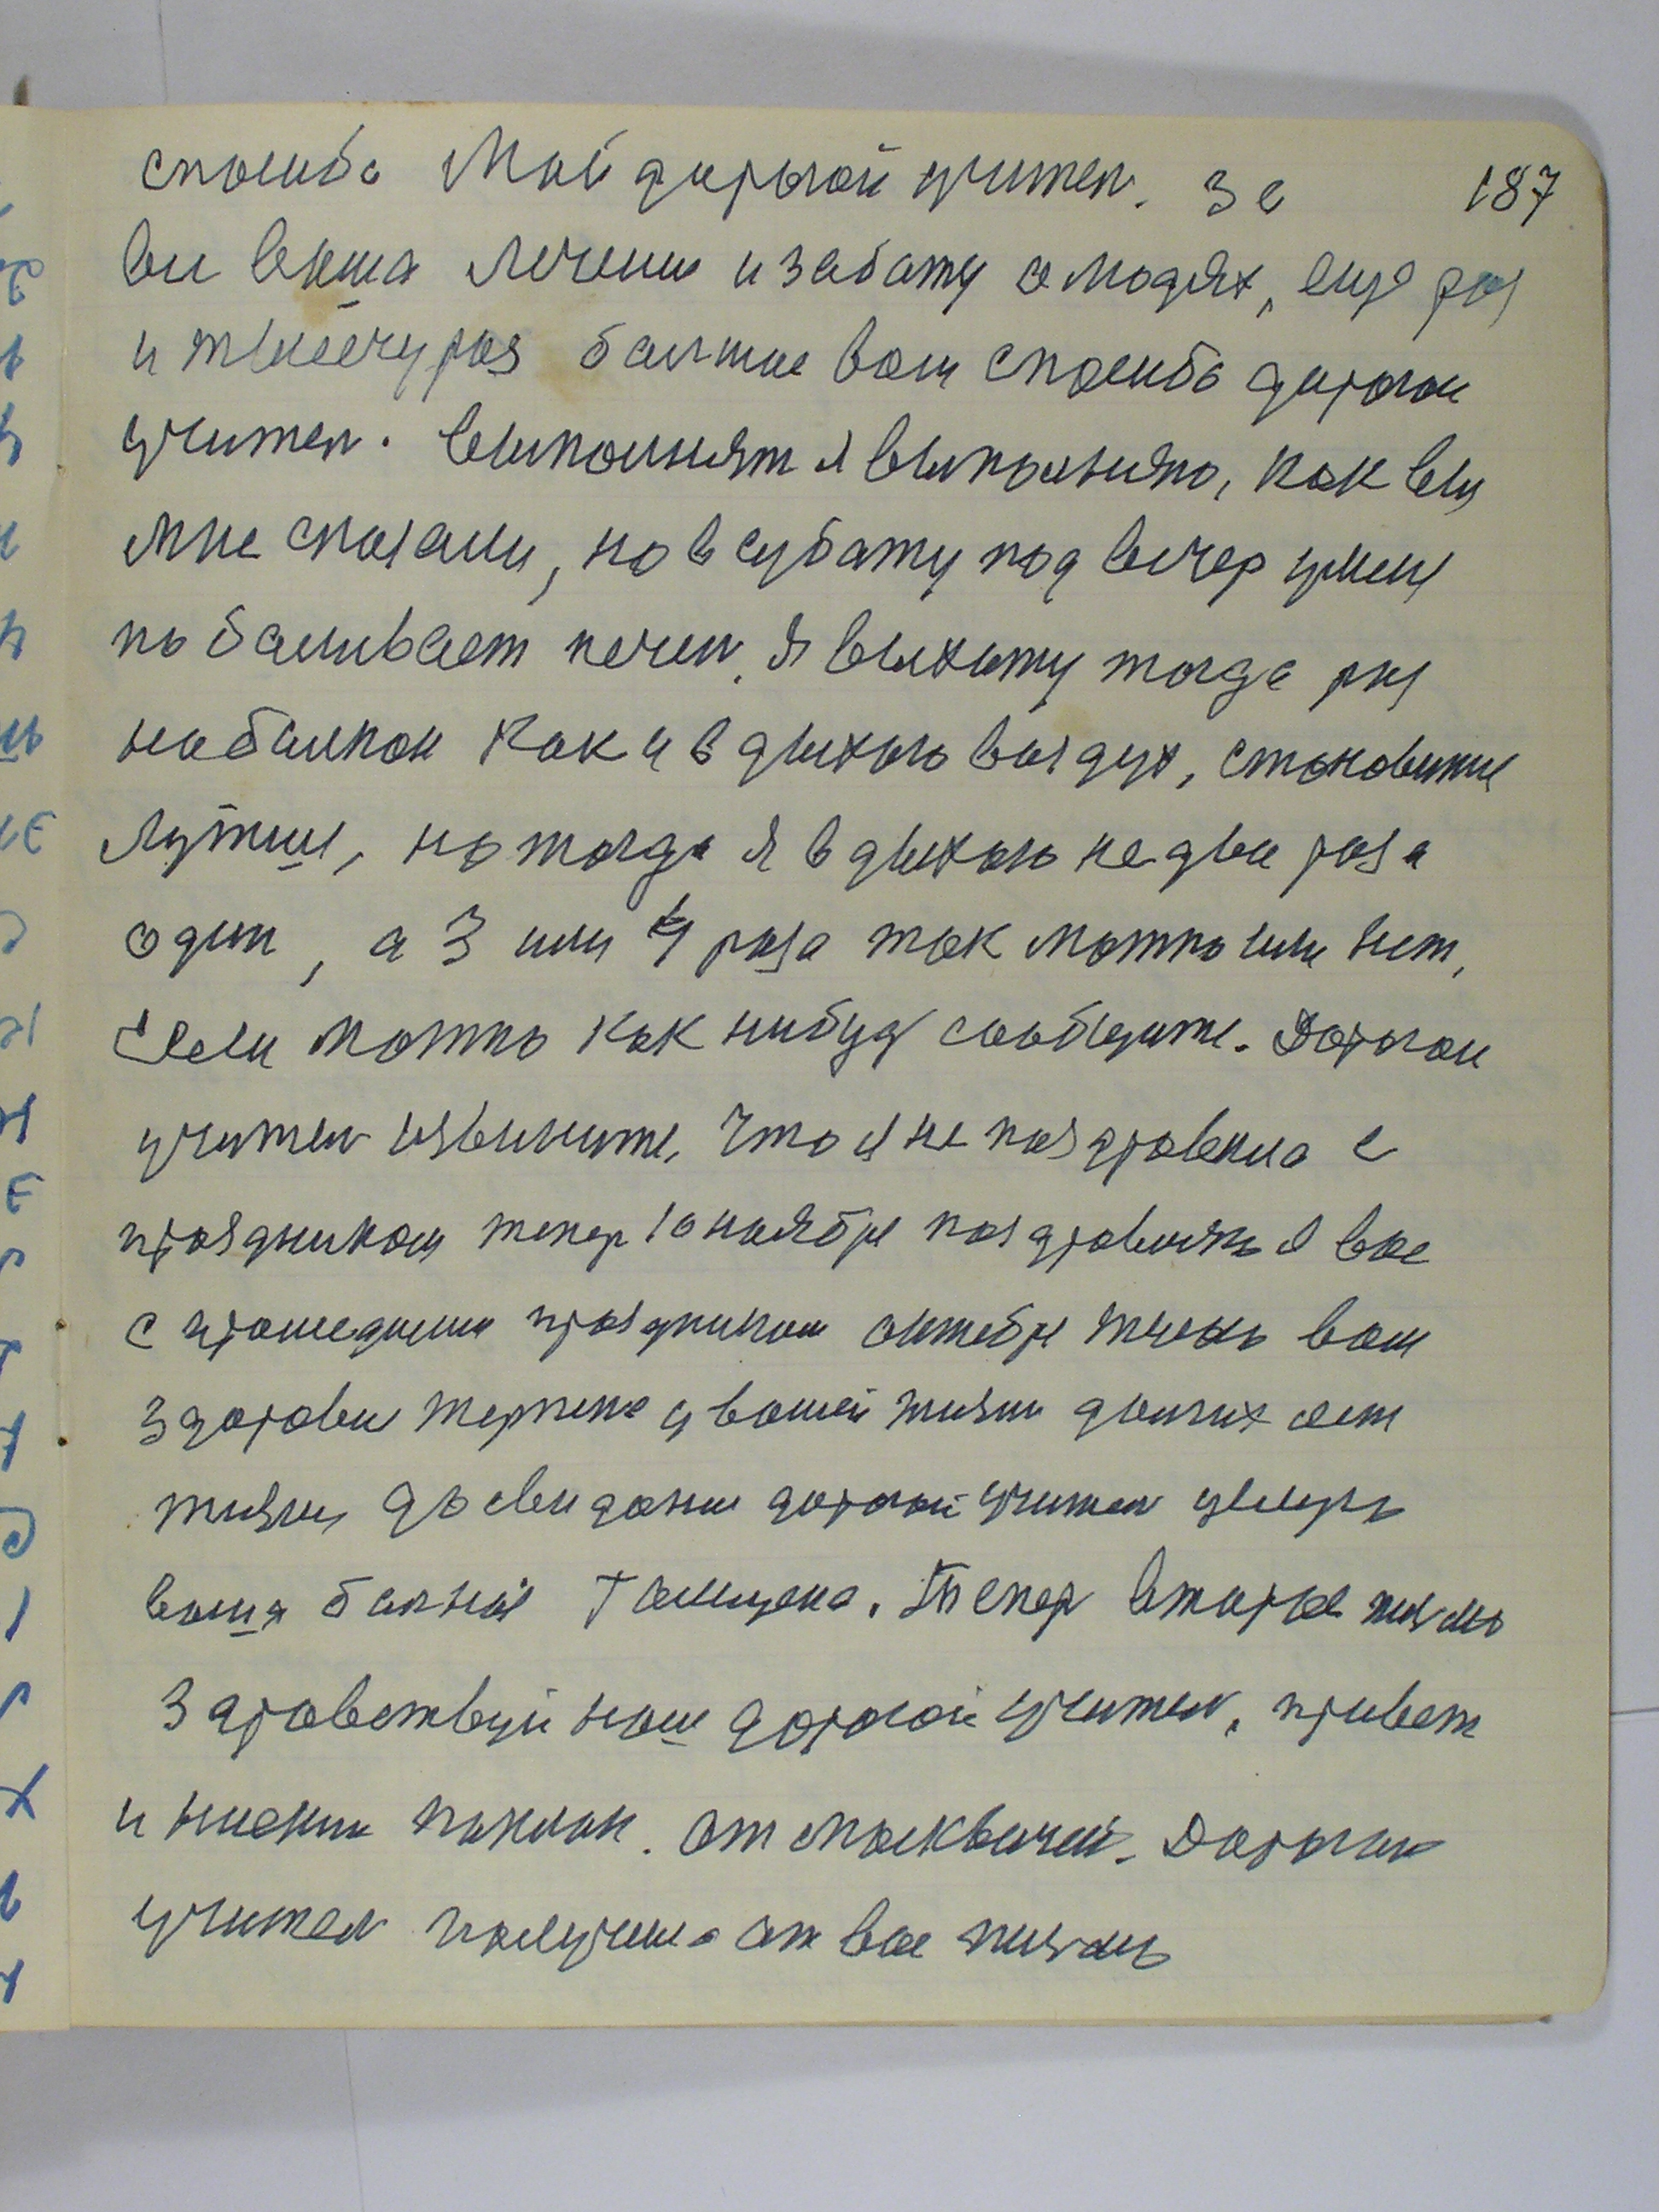 спасиба Мой дарагой учител. За 187
ви ваша личени и забату о людях, ещё раз
и тысечу раз балшое вам спасиба дарагои
учител. Выполнят я выполняю, как вы
мне сказали, но в субату под вечер у мен
по баливает печен. Я выхажу тогда раз
на балкон Как и вдыхаю ваздух, становитце
лутше, но тогда я вдыхаю не дви раза
один, а 3 или 4 раза так можно или нет,
Если можно как нибуд саобщите. Дорагои
учител извините, что я не поздравила с
праздником тепер 10 ноября поздравляю я вас
с прошедшим праздником октебря желаю вам
здоровя терпения у вашей жизни долгих лет
жизни, до свидания дорагой учител целую
ваша балная Тамиуска. Тепер второе писмо
Здравствуй наш дорогой учител, привет
и ниский паклон. От москвичей. Дорагои
учител палучила от вас писмо